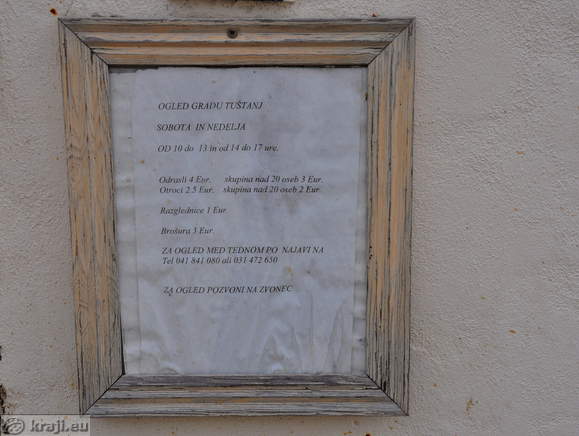 OGLED GRADU TUŠTANJ
SOBOTA IN NEDELJA
OD 10 do 13 in od 14 do 17 ure.
Odrasli 4 Eur. skupina nad 20 oseb 3 Eur.
Otroci 2.5 Eur. skupina nad 20 oseb 2 Eur.
Razglednice 1 Eur.
Brošura 3 Eur.
ZA OGLED MED TEDNOM PO NAJAVI NA
Tel 041 841 080 ali 031 472 650
ZA OGLED POZVONI NA ZVONEC
kraji.eu